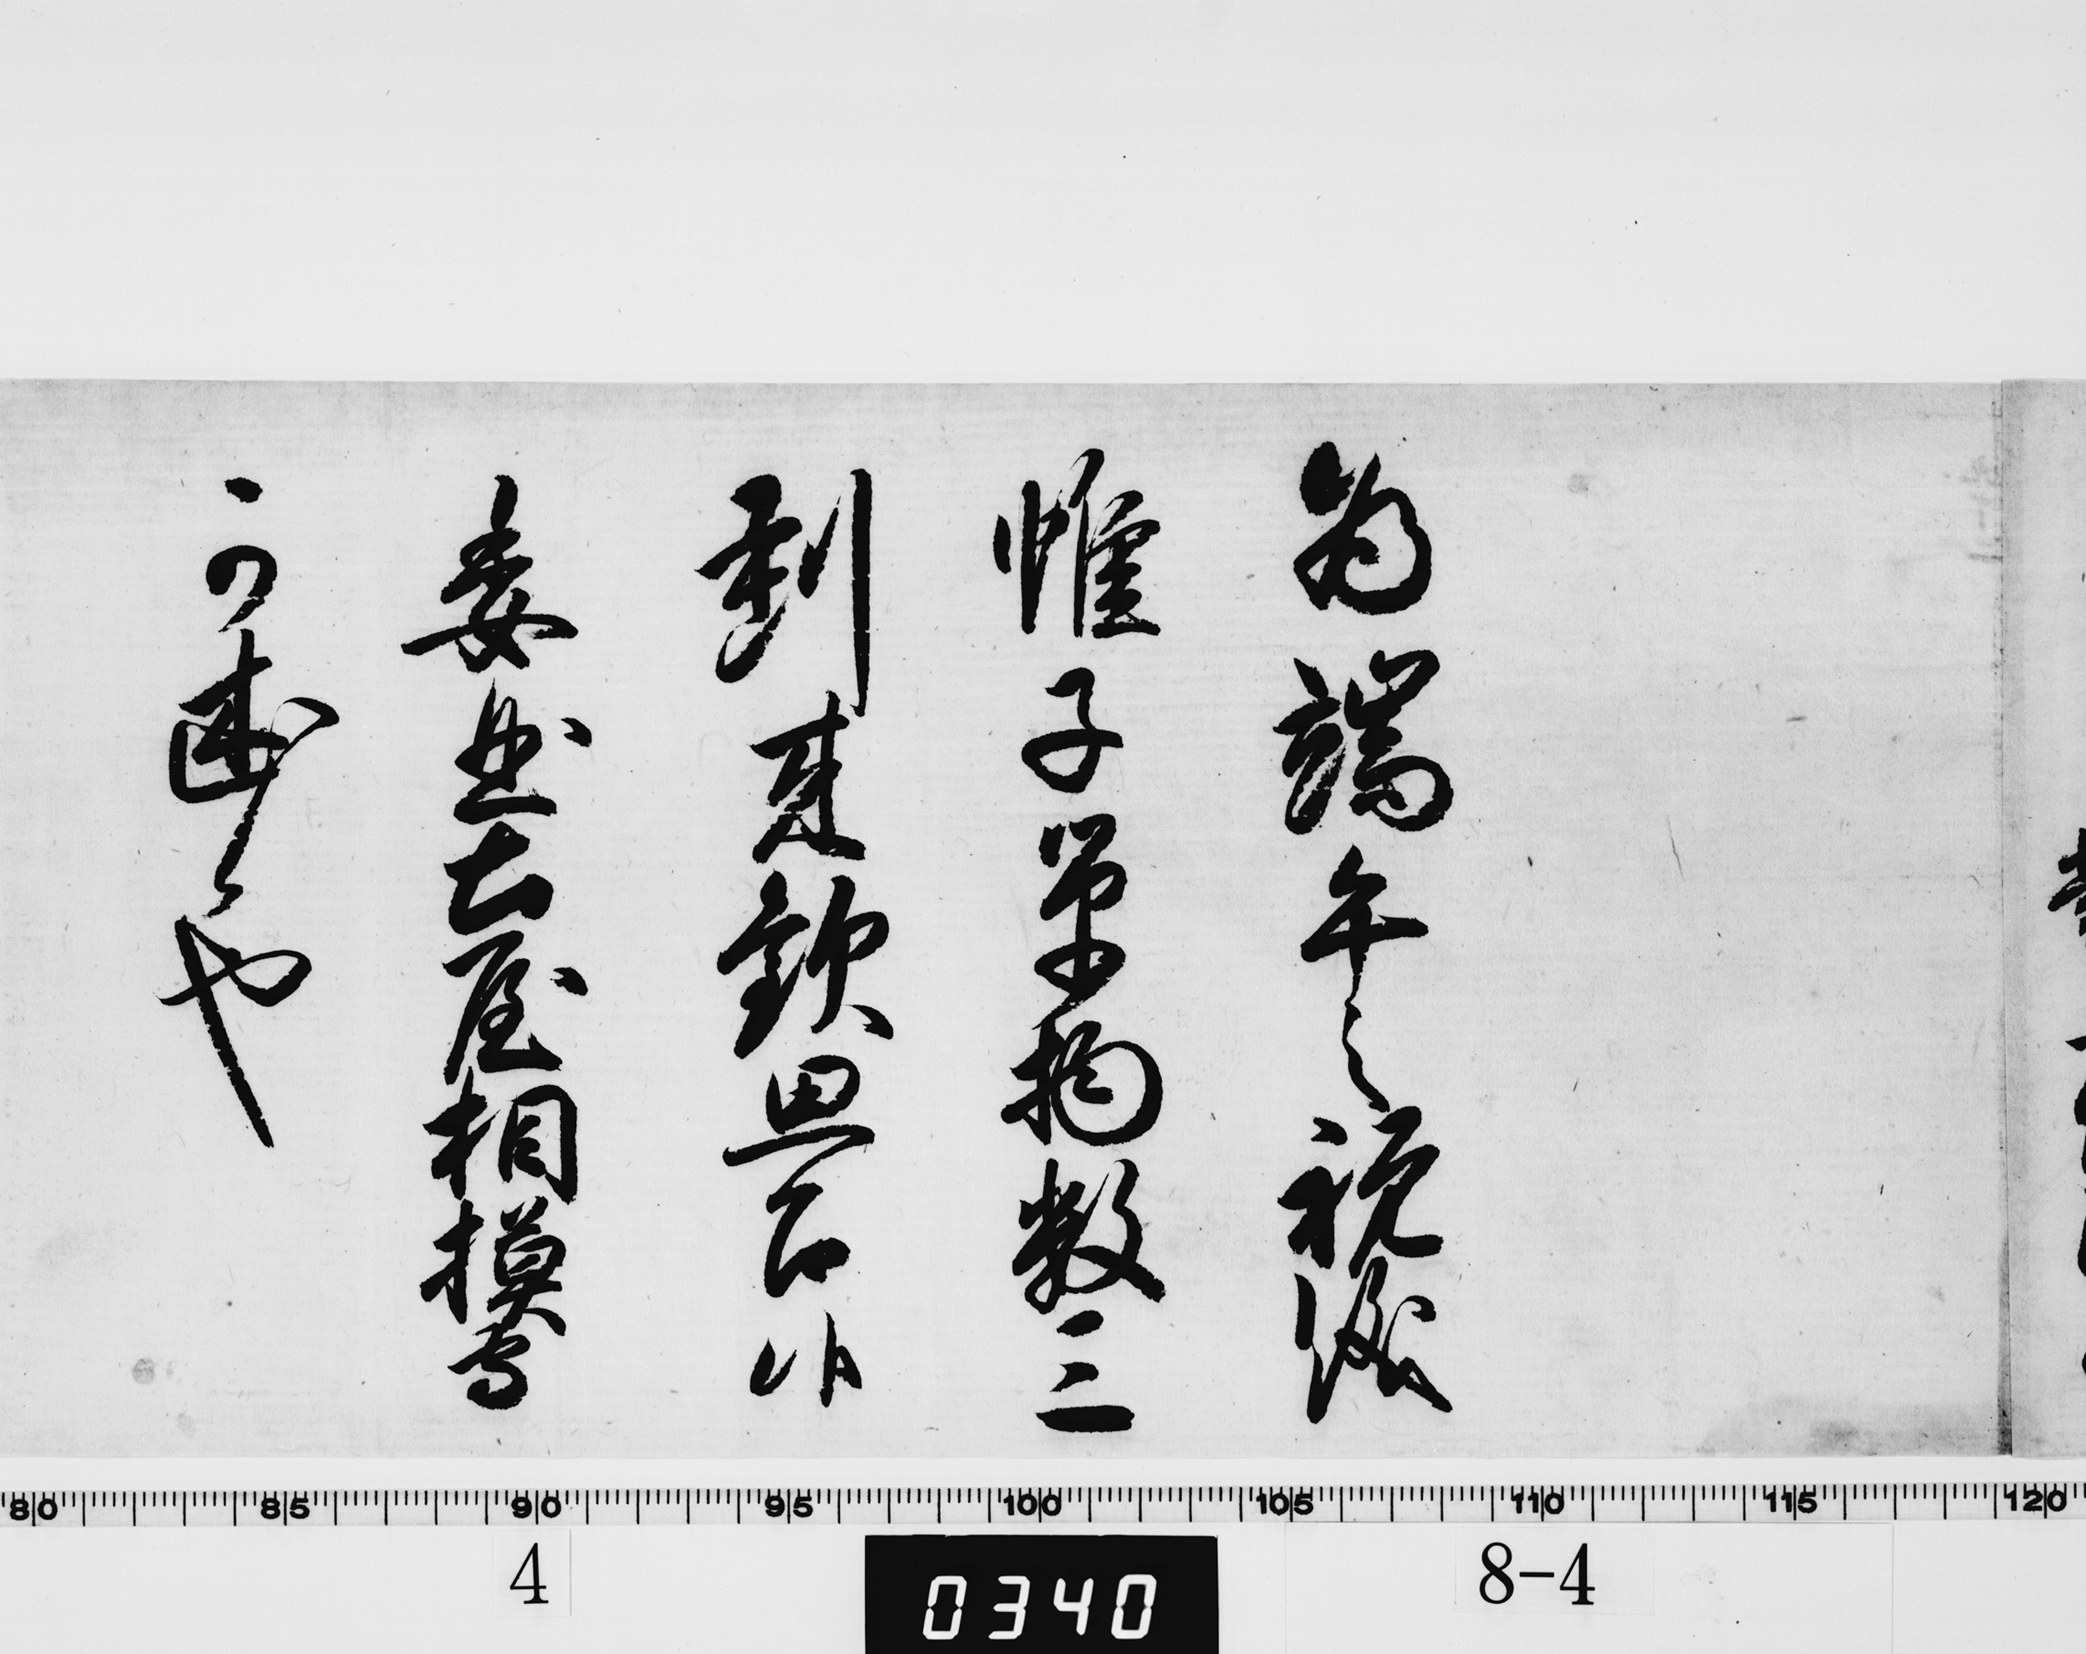 為端午之祝儀
帷子單物数三
到来歓思召候
委曲土屋相摸守
可述候也
80 85 90 95 100 105 110 115 120
4 0340 8-4